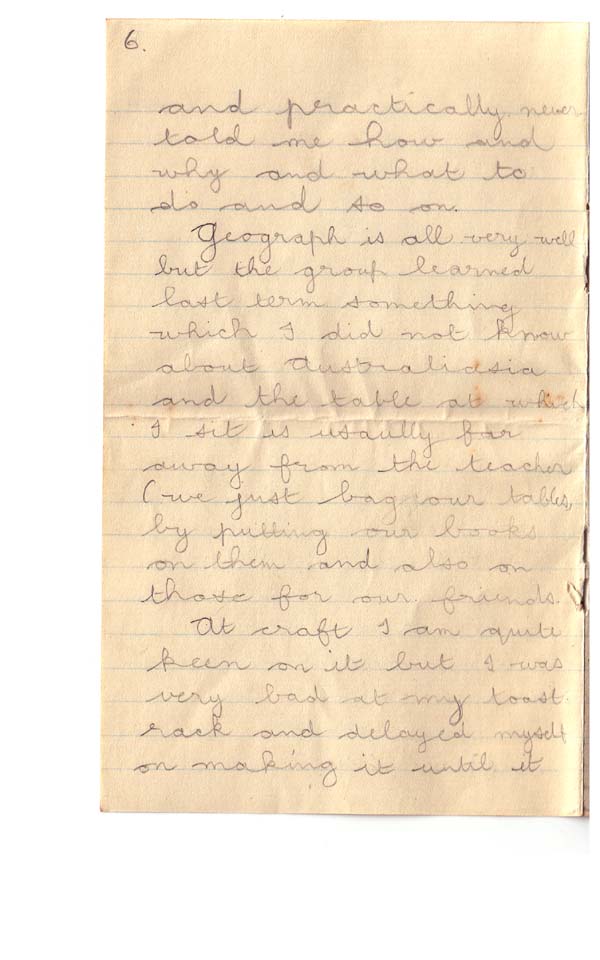 6.
and practically never
told me how and
why and what to
do and so on.
Geograph is all very well
but the group learned
last term something
which I did not know
about Australiasia
and the table at which
I sit is usaully far
away from the teacher
(we just bag our tables,
by putting our books
on them and also on
those for our friends.
At craft I am quite
keen on it but I was
very bad at my toast
rack and delayed myself
on making it until it